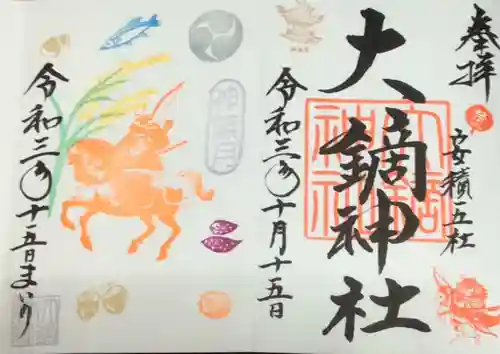 奉拝
安積五社
大鏑神社
令和三年十月十五日
神無月
令和三年十月十五日まいり